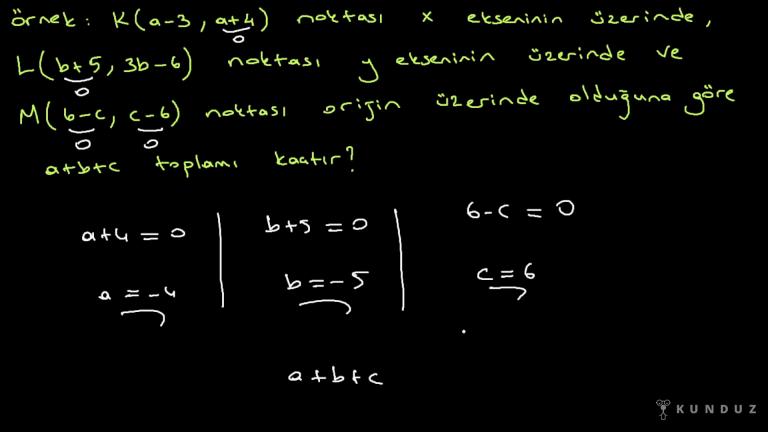 örnek: K(a-3, a+4) noktası x ekseninin üzerinde,
0
L(b+5, 3b-6) noktası y ekseninin üzerinde ve
0
M(b-c, c-6) noktası orijin üzerinde olduğuna göre
0 0
a+b+c toplamı kaçtır?
a+4=0 b+5=0 6-c=0
a=-4 b=-5 c=6
a+b+c
KUNDUZ